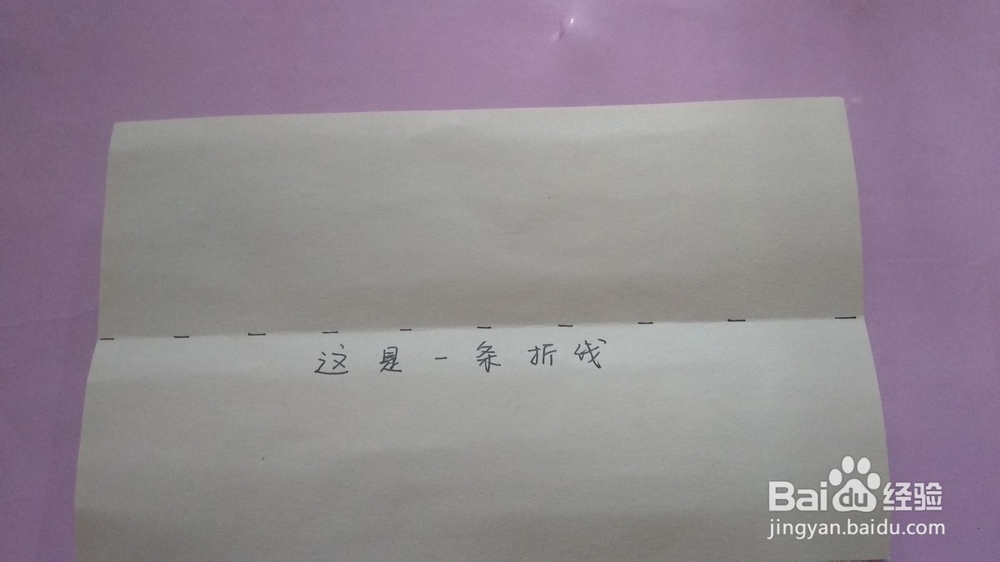 这是一条折线
Baidu经验
jingyan.baidu.com